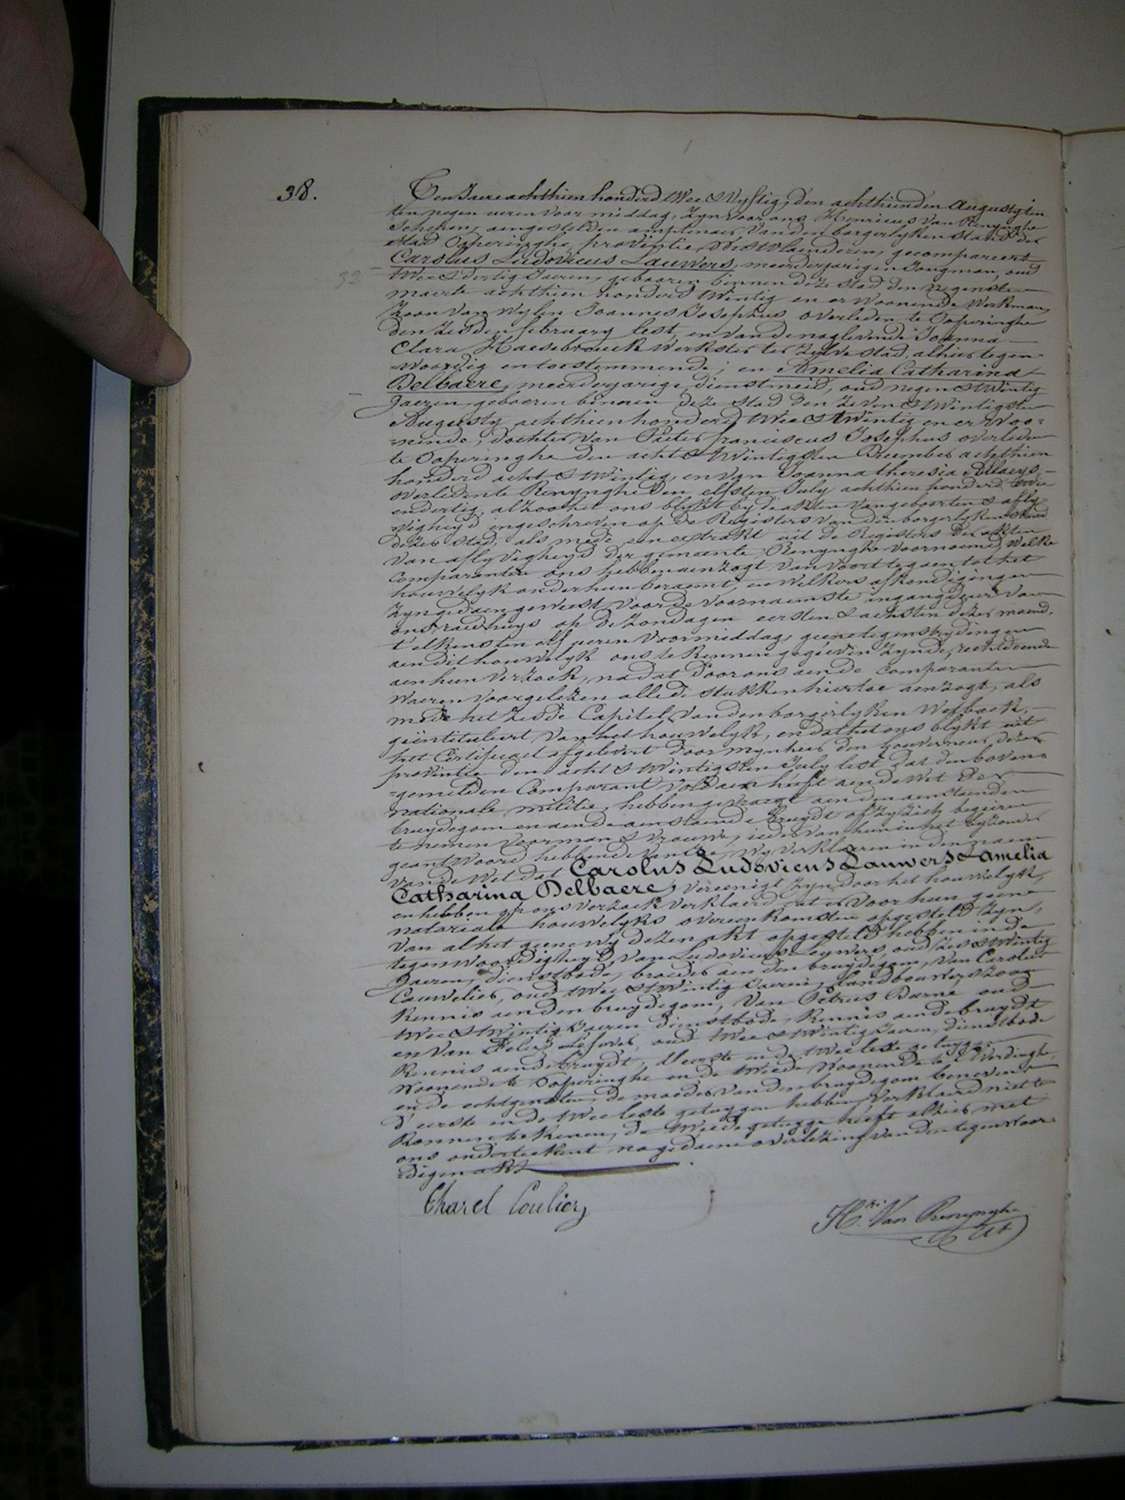 38.
Ten Jaere achthien honderd twee & vyftig, den achthienden Augusty ten
tien negen ueren voor middag, zyn voor ons Henricus Van Renynghe
Schepen, aengestelden amptenaer van den borgerlyken stand der
stad Poperinghe, provintie Westvlaenderen, gecompareert
Carolus Ludovicus Lauwers, meerderjarigen Jongman, oud
twee & dertig Jaeren, geboren binnen deze Stad den negensten
maerte achthien honderd twintig en er woonende, Werkman,
Zoon van wylen Joannes Josephus overleden te Poperinghe
den zesden february lest, en van de naglevende Joanna
Clara Haesebrouck Werkster te zelve stad, alhier tegen-
woordig en toestemmende; en Amelia Catharina
Delbaere, meerderjarige, dienstmeid, oud negen & twintig
Jaeren, geboren binnen deze Stad den zeven & twintigsten
Augusty achthien honderd twee & twintig en er woo-
nende, dochter van Pieter franciscus Josephus overleden
te Poperinghe den acht & twintigsten December achthien
honderd acht & twintig, en van Joanna theresia
overleden te Renynghe den elfsten July achthien honderd twee
en dertig, alzoo het ons blykt by de akten van geboorten & afly-
vigheyd ingeschreven op de Registers van den borgerlyken stand
dezer stad, als mede een extrakt uit de Registers der akten
van aflyvigheyd der gemeente Renynghe voornoemd, welke
comparanten ons hebben aenzogt van voort te gaen tot het
houwelyk onder hun beraemt, en welkers afkondigingen
zyn gedaen geweest voor de voornaemste ingangdeur van
ons raedhuys op de zondagen eersten & achsten dezer maend,
t'elkens ten elf ueren voormiddag, geene tegenstrydingen
aen dit houwelyk ons te kennen gegeven zynde, rechtdoende
aen hun verzoek, nadat door ons aen de comparanten
waeren voorgelezen alle de stukken hiertoe aenzogt, als
mede het zesde Capitel van den borgerlyken Wetboek,
geintituleert van het houwelyk, en dat het ons blykt uit
het Certificaet afgelevert door mynheer den gouverneur dezer
provintie den acht & twintigsten July lest dat den boven-
gemelden Comparant voldaen heeft aen de Wet der
nationale militie, hebben gevraegt aen den aenstaenden
bruydegom en aen de aenstaende bruydt of zy zich begeeren
te nemen voor man & vrouwe, ieder van hun in het byzonder
geantwoord hebbende van Ja, wy verklaren in den naem
van de Wet dat Carolus Ludovicus Lauwers & Amelia
Catharina Delbaere, vereenigt zyn door het houwelyk,
en hebben op ons verzoek verklaerd dat er voor hun geene
notariale houwelyks overeenkomsten opgesteld zyn,
van al het geene wy dezen akt opgesteld hebben in de
tegenwoordigheyd van Ludovicus oud zes & twintig
Jaeren, dienstbode, broeder aen den bruydegom, van Carolus
Couwelier, oud twee & twintig Jaeren, Landbouwers zoon
kennis aen den bruydegom, van Petrus Barne oud
twee & twintig Jaeren dienstbode, kennis aen de bruydt
en van Felix Lefever, oud twee & twintig Jaeren, dienstbode
kennis aen de bruydt, d'eerste en de twee leste getuygen
woonende te Poperinghe en de tweede woonende te
en de echtgenoten, de moeder van den bruydegom benevens
d'eerste en de twee leste getuygen hebben verklaerd niet te
konnen teekenen, de tweede getuyge heeft alhier met
ons onderteekent na gedaene overlezing van den tegenwoor-
digen akt.
Charel Coulier
Hri. Van Renynghe